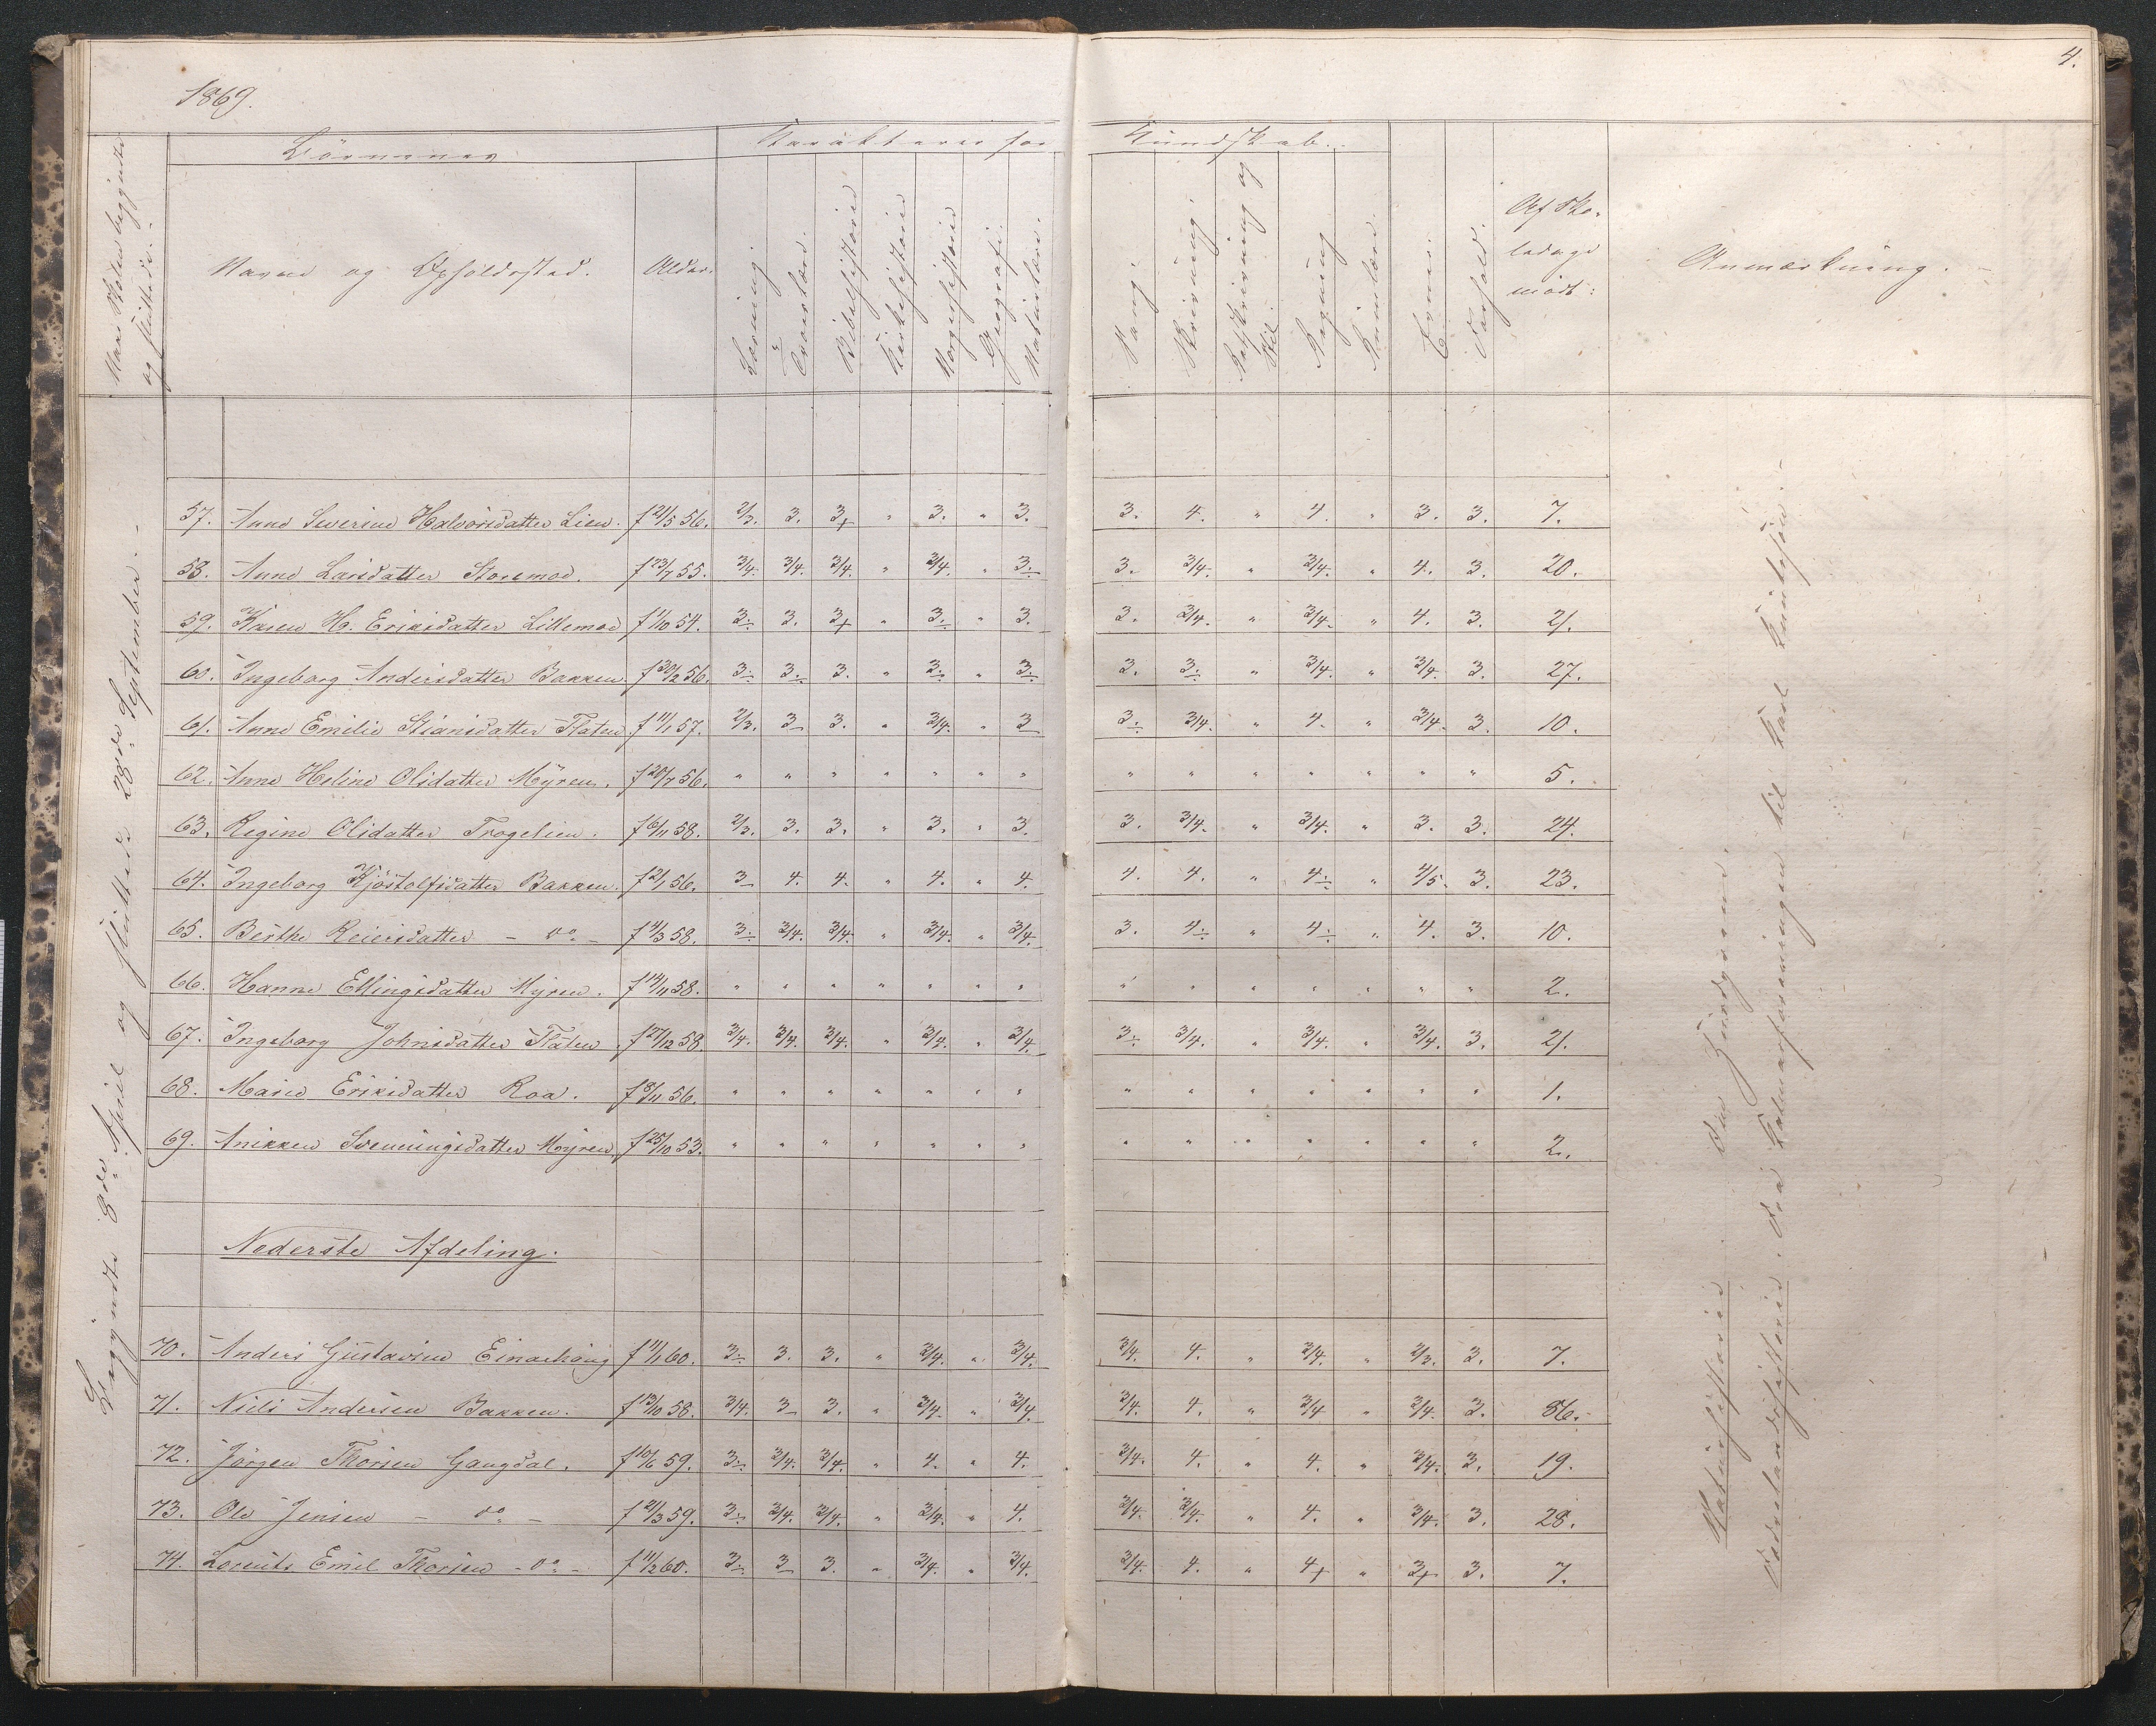 1869.
4.
Naar Skolen begyndte og sluttede.
Børnenes
Karakterer for
Kundskab.
Navne og Opholdssted.
Alder.
Læsning
Troeslære.
Bibelhistorie
Kirkehistorie
Norgeshistorie
Geografi.
Naturlære.
Sang
Skrivning
Retskrivning og Stil.
Regning
Evner.
Forhold.
Af Sko-
ledage
mødt:
Anmærkning.
Begyndte 8de April og sluttede 28de September.
57. Anne Severine Halvorsdatter Lien. f 21/5 56. 2/3. 3. 3+ " 3. " 3. 3. 4. " 4. " 3. 3. 7.
58. Anne Larsdatter Storemoe. f 23/7 55. 3/4. 3/4. 3/4. " 3/4. " 3÷ 3. 3/4. " 3/4. " 4. 3. 20.
59. Karen H. Eriksdatter Lillemoe f 1/10 54. 3÷ 3. 3+ " 3÷ " 3. 3. 3/4. " 3/4. " 4. 3. 21.
60. Ingeborg Andersdatter Bakken. f 30/2 56. 3÷ 3÷ 3. " 3÷ " 3÷ 3. 3÷ " 3/4. " 3/4. 3. 27.
61. Anne Emilie Stiansdatter Flaten f 11/1 57. 2/3. 3 3. " 3/4. " 3 3÷ 3/4. " 4. " 3/4. 3. 10.
62. Anne Heline Olsdatter Myren. f 20/7 56. " " " " " " " " " " " " " " 5.
63. Regine Olsdatter Trogelien. f 6/11 58. 2/3. 3. 3. " 3. " 3. 3. 3/4. " 3/4. " 3. 3. 24.
64. Ingeborg Kjøstolfsdatter Bakken. f 2/1 56. 3 4. 4. " 4. " 4. 4. 4. " 4÷ " 4/5. 3. 23.
65. Berthe Reiersdatter - do - f 4/3 58. 3÷ 3/4. 3/4. " 3/4. " 3/4. 3. 4÷ " 4÷ " 4. 3. 10.
66. Hanne Ellingsdatter Myren. f 14/11 58. " " " " " " " " " " " " " " 2.
67. Ingeborg Johnsdatter Flaten f 27/12 58. 3/4. 3/4. 3/4. " 3/4. " 3/4. 3÷ 3/4. " 3/4. " 3/4. 3. 21.
68. Maren Eriksdatter Roa. f 8/11 56. " " " " " " " " " " " " " " 1.
69. Anikken Svenningsdatter Myren. f 25/10 53. " " " " " " " " " " " " " " 2.
Nederste Afdeling.
70. Anders Gustavsen Einarhaug f 11/1 60. 3÷ 3. 3. " 3/4. " 3/4. 3/4. 4. " 3/4. " 2/3. 3. 7.
71. Niels Andersen Bakken. f 13/10 58. 3/4. 3 3. " 3/4. " 3/4. 3/4. 4. " 3/4 " 3/4. 3. 86.
72. Jørgen Thorsen Gangdal. f 10/6 59. 3÷ 3/4. 3/4. " 4. " 4. 3/4. 4. " 4. " 3/4. 3. 19.
73. Ole Jensen - do - f 21/3 59. 3÷ 3/4. 3/4. " 3/4. " 4. 3/4. 3/4. " 4. " 3/4. 3. 28.
74. Lorents Emil Thorsen - do - f 11/2 60. 3÷ 3 3. " 3/4. " 3/4. 3/4. 4. " 4+ " 3+ 3. 7.
Naturhistorie
Fædrelandshistorie. Fra Kalmarforeningen til